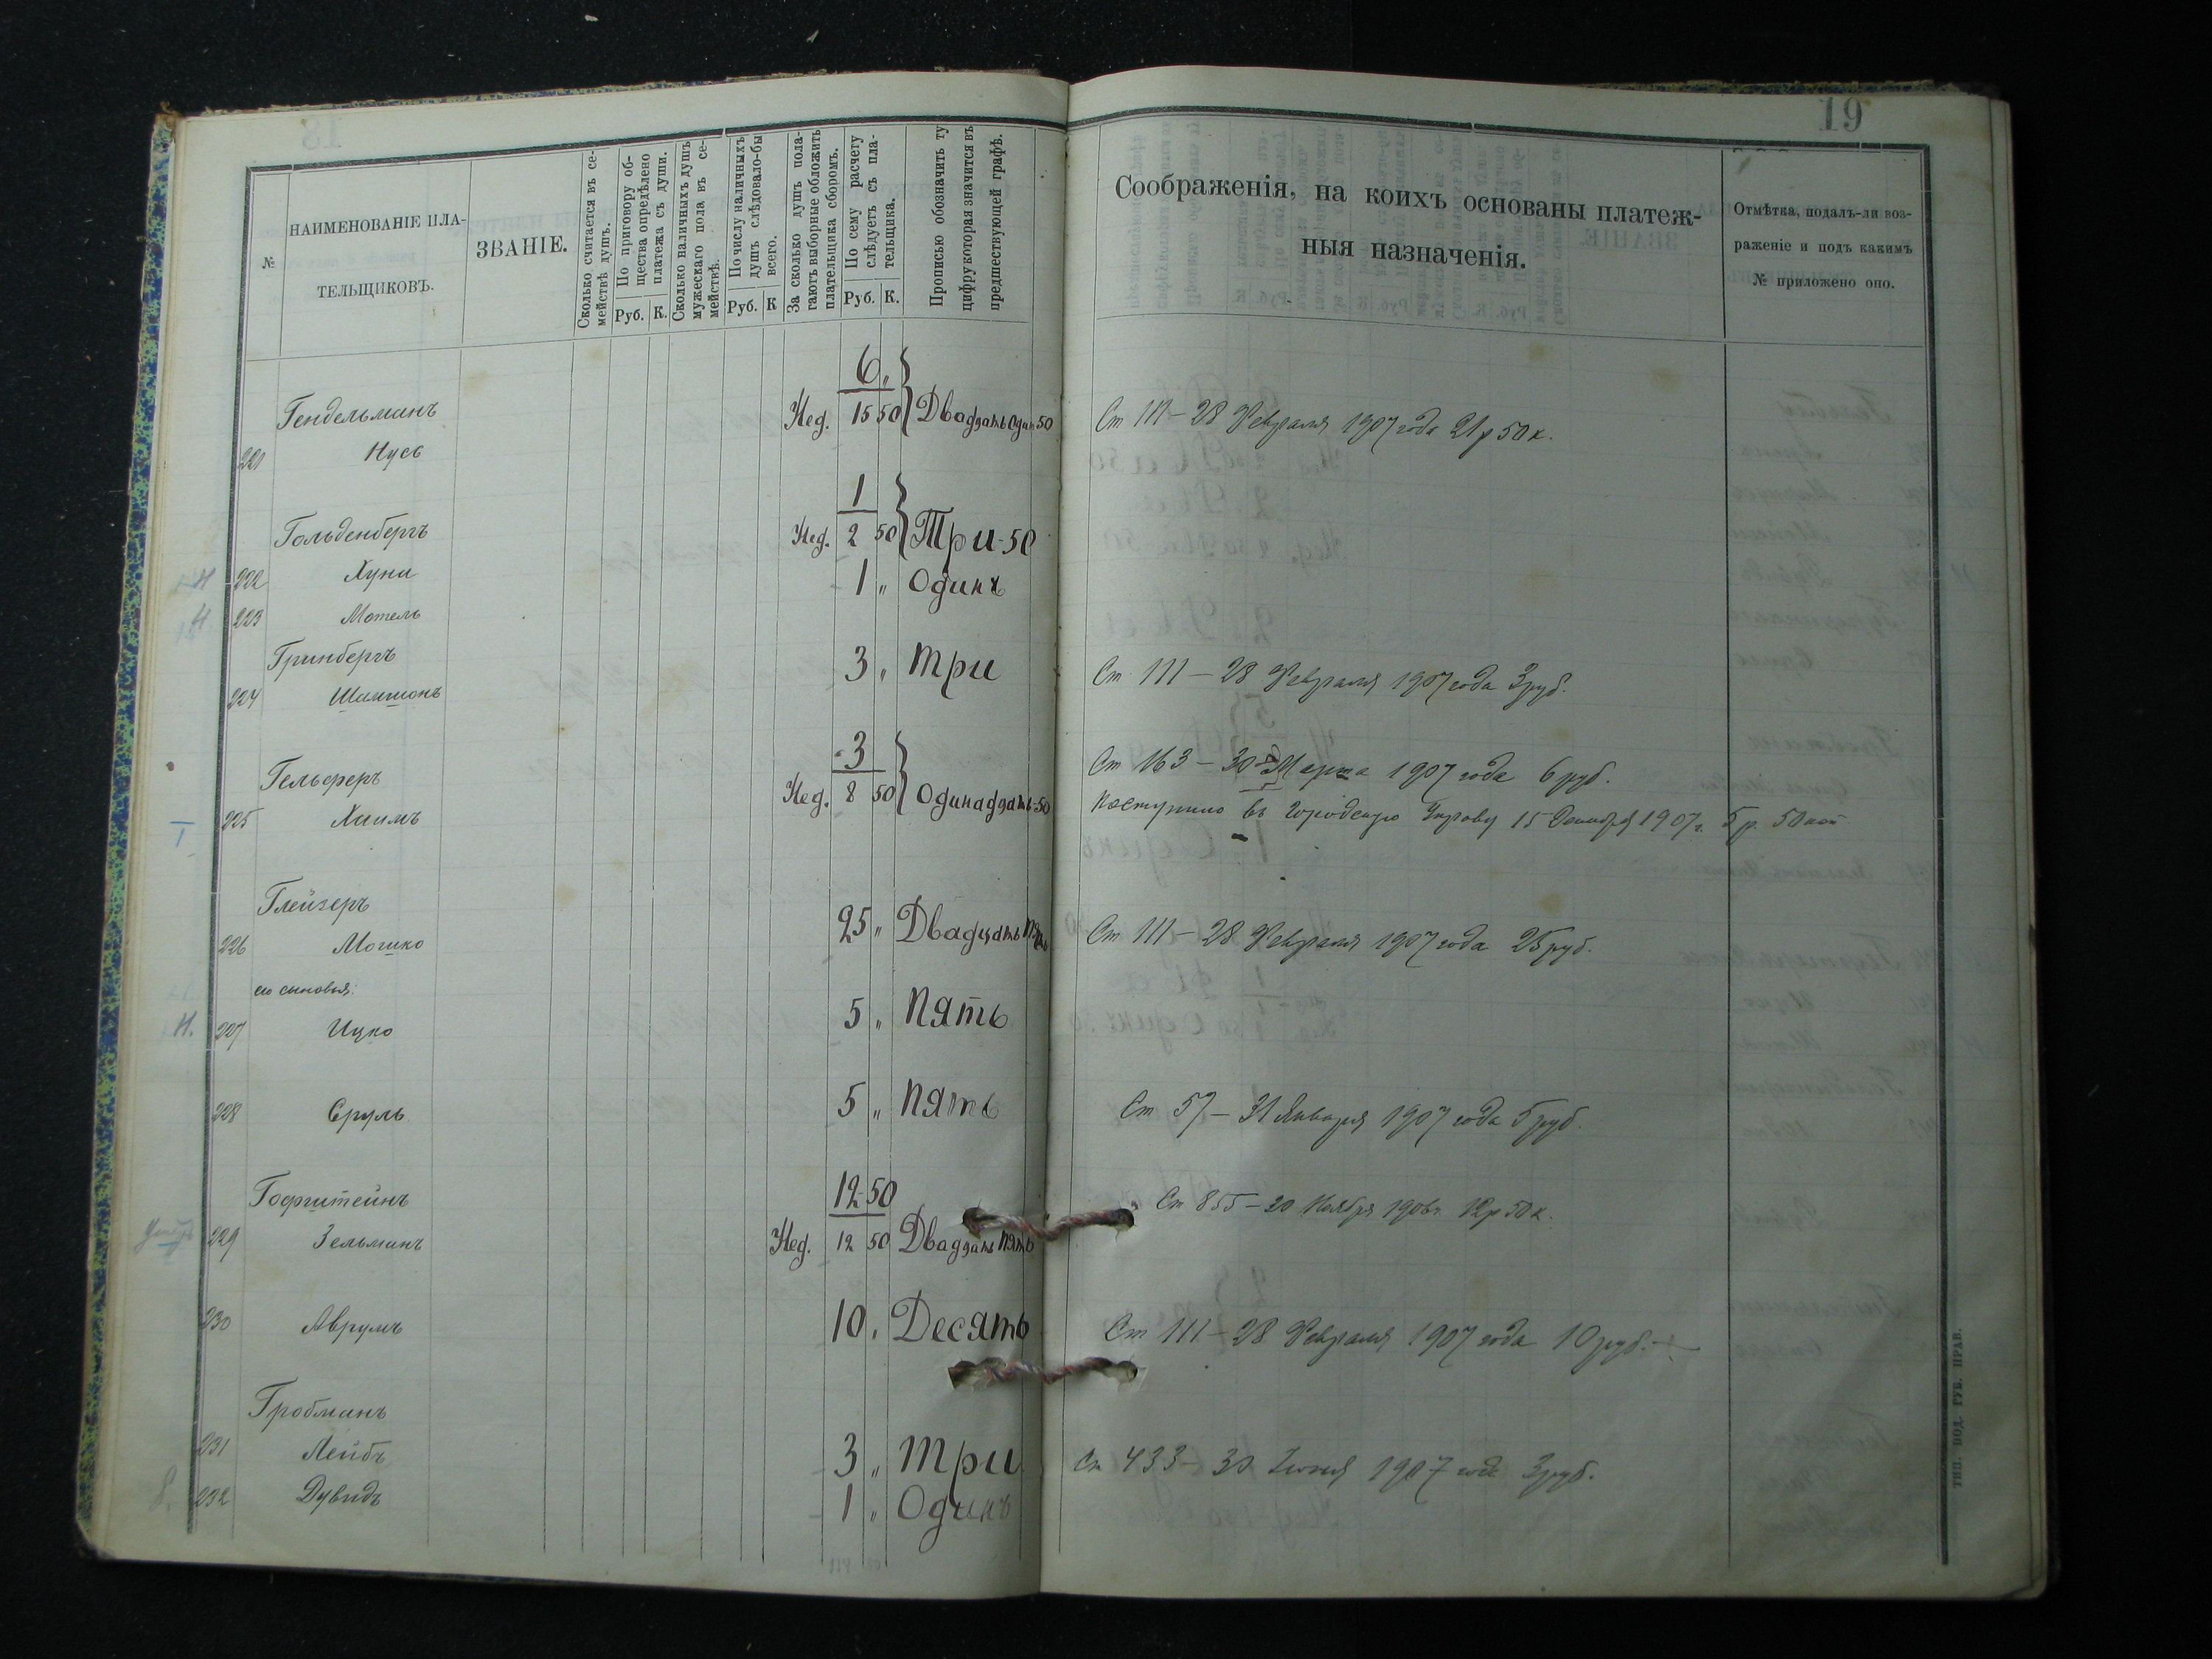 19
№
НАИМЕНОВАНІЕ ПЛА-
ТЕЛЬЩИКОВЪ.
ЗВАНІЕ.
Сколько считается въ се-
мействѣ душъ.
По приговору об-
щества опредѣлено
платежа съ души.
Руб. К.
Сколько наличныхъ душъ
мужескаго пола въ се-
мействѣ.
По числу наличныхъ
душъ слѣдовало-бы
всего.
Руб. К
За сколько душъ пола-
гаютъ выборные обложить
плательщика сборомъ.
По сему расчету
слѣдуетъ съ пла-
тельщика.
Руб. К.
Прописью обозначить ту
цифру которая значится въ
предшествующей графѣ.
Соображенія, на коихъ основаны платеж-
ныя назначенія.
Отмѣтка, подалъ-ли воз-
раженіе и подъ какимъ
№ приложено оно.
6 "
Гендельманъ Нед. 15 50 Двадзать один 50 Ст 111 – 28 Февраля 1907 года 21 р 50 к.
221 Нусь
1
Гольденбергъ Нед. 2 50 Три-50
222 Хуна 1 " Одинъ
223 Мотель
Гринбергъ 3 " Три Ст 111 – 28 Февраля 1907 года 3 руб.
224 Шамшонъ
3
Гельферъ Нед. 8 50 Одинадзать-50 Ст 163 – 30 Марта 1907 года 6 руб.
225 Хаимъ Поступило въ Городскую Управу 15 Декабря 1907 г. 5 р. 50 коп
Глейзеръ
226 Мошко 25 " Двадцать пять Ст 111 – 28 Февраля 1907 года 25 руб.
его сыновья:
Н. 227 Ицко 5 " Пять
228 Сруль 5 " Пять Ст 57 – 31 Января 1907 года 5 руб.
Гофштейнъ 12 50 Ст 855 – 20 Ноября 1906 г. 12 р 50 к.
229 Зельманъ Нед. 12 50 Двадзать пять
230 Аврумъ 10 " Десять Ст 111 – 28 Февраля 1907 года 10 руб.
Гробманъ
231 Лейбъ 3 " Три Ст 433 – 30 Іюня 1907 года 3 руб.
232 Дувидъ 1 " Одинъ
ТИП. ПОД. ГУБ. ПРАВ.